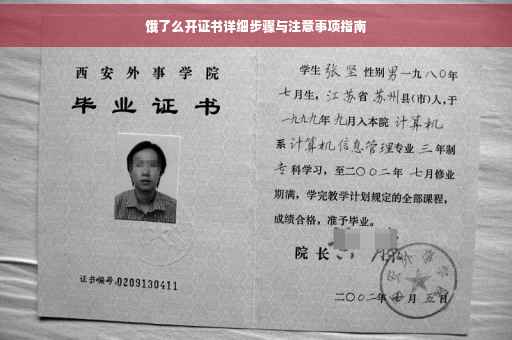 饿了么开证书详细步骤与注意事项指南
西安外事学院
毕业证书
证书编号:0209130411
学生 张坚 性别 男 一九八〇年
七月生，江苏省 苏州县(市)人，于
一九九九年 九月入本院 计算机
系 计算机信息管理专业 三 年制
专 科学习，至二〇〇二年 七月修业
期满，学完教学计划规定的全部课程，
成绩合格，准予毕业。
院长
二〇〇二年 七 月 五 日